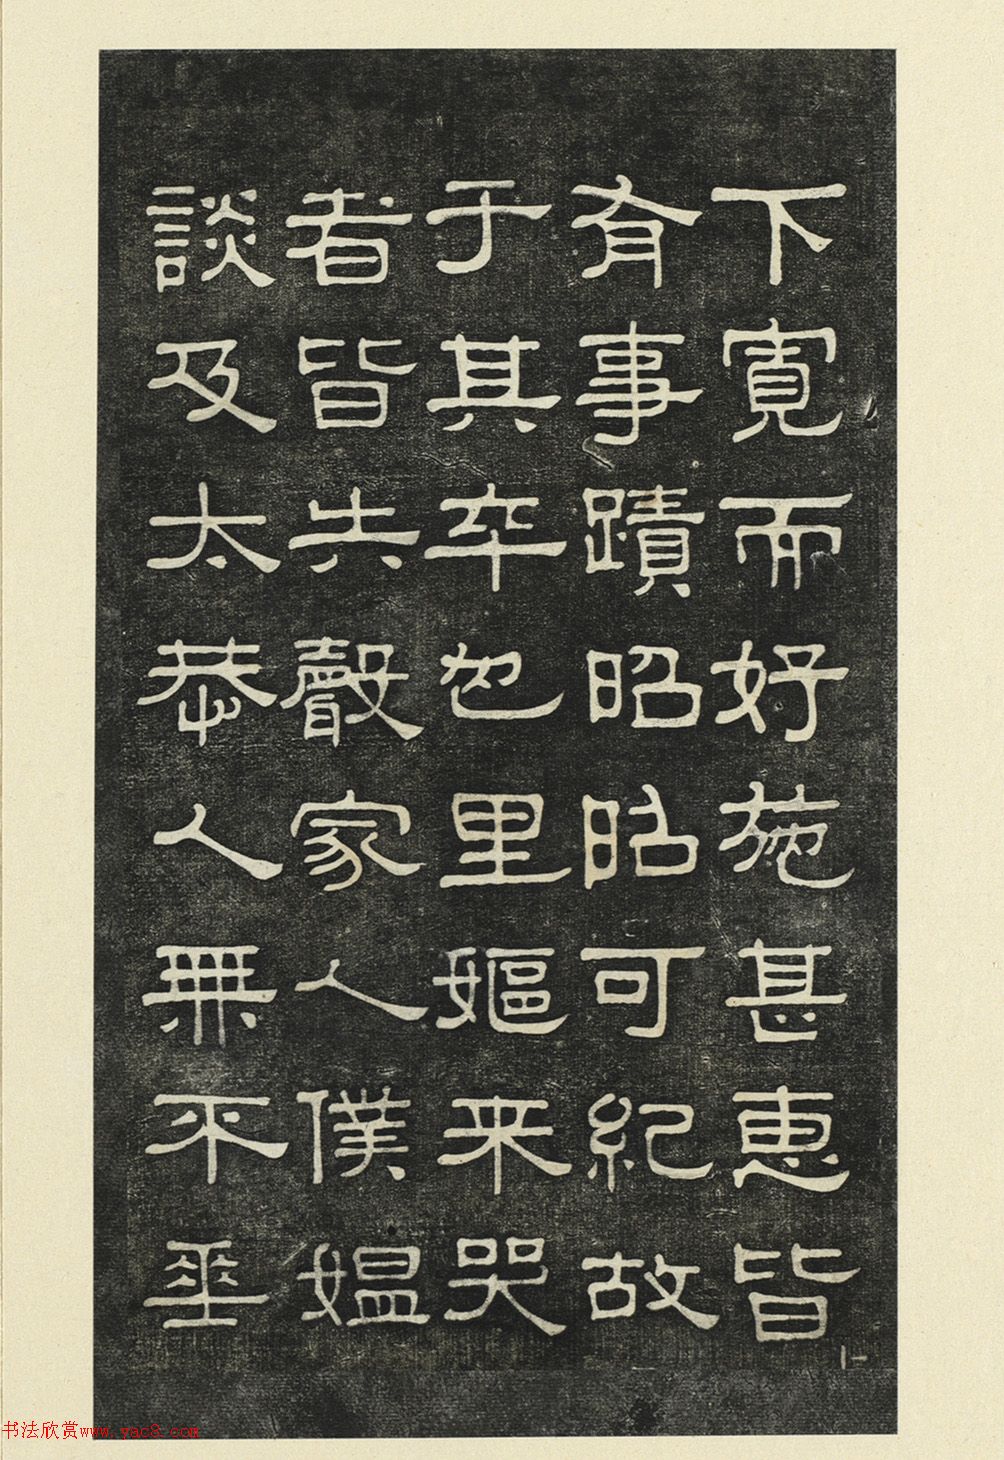 下寬而好施甚惠皆
有事蹟昭昭可紀故
于其卒也里嫗来哭
者皆失聲家人僕媪
談及太恭人無不垂
書法欣赏www.yac8.com